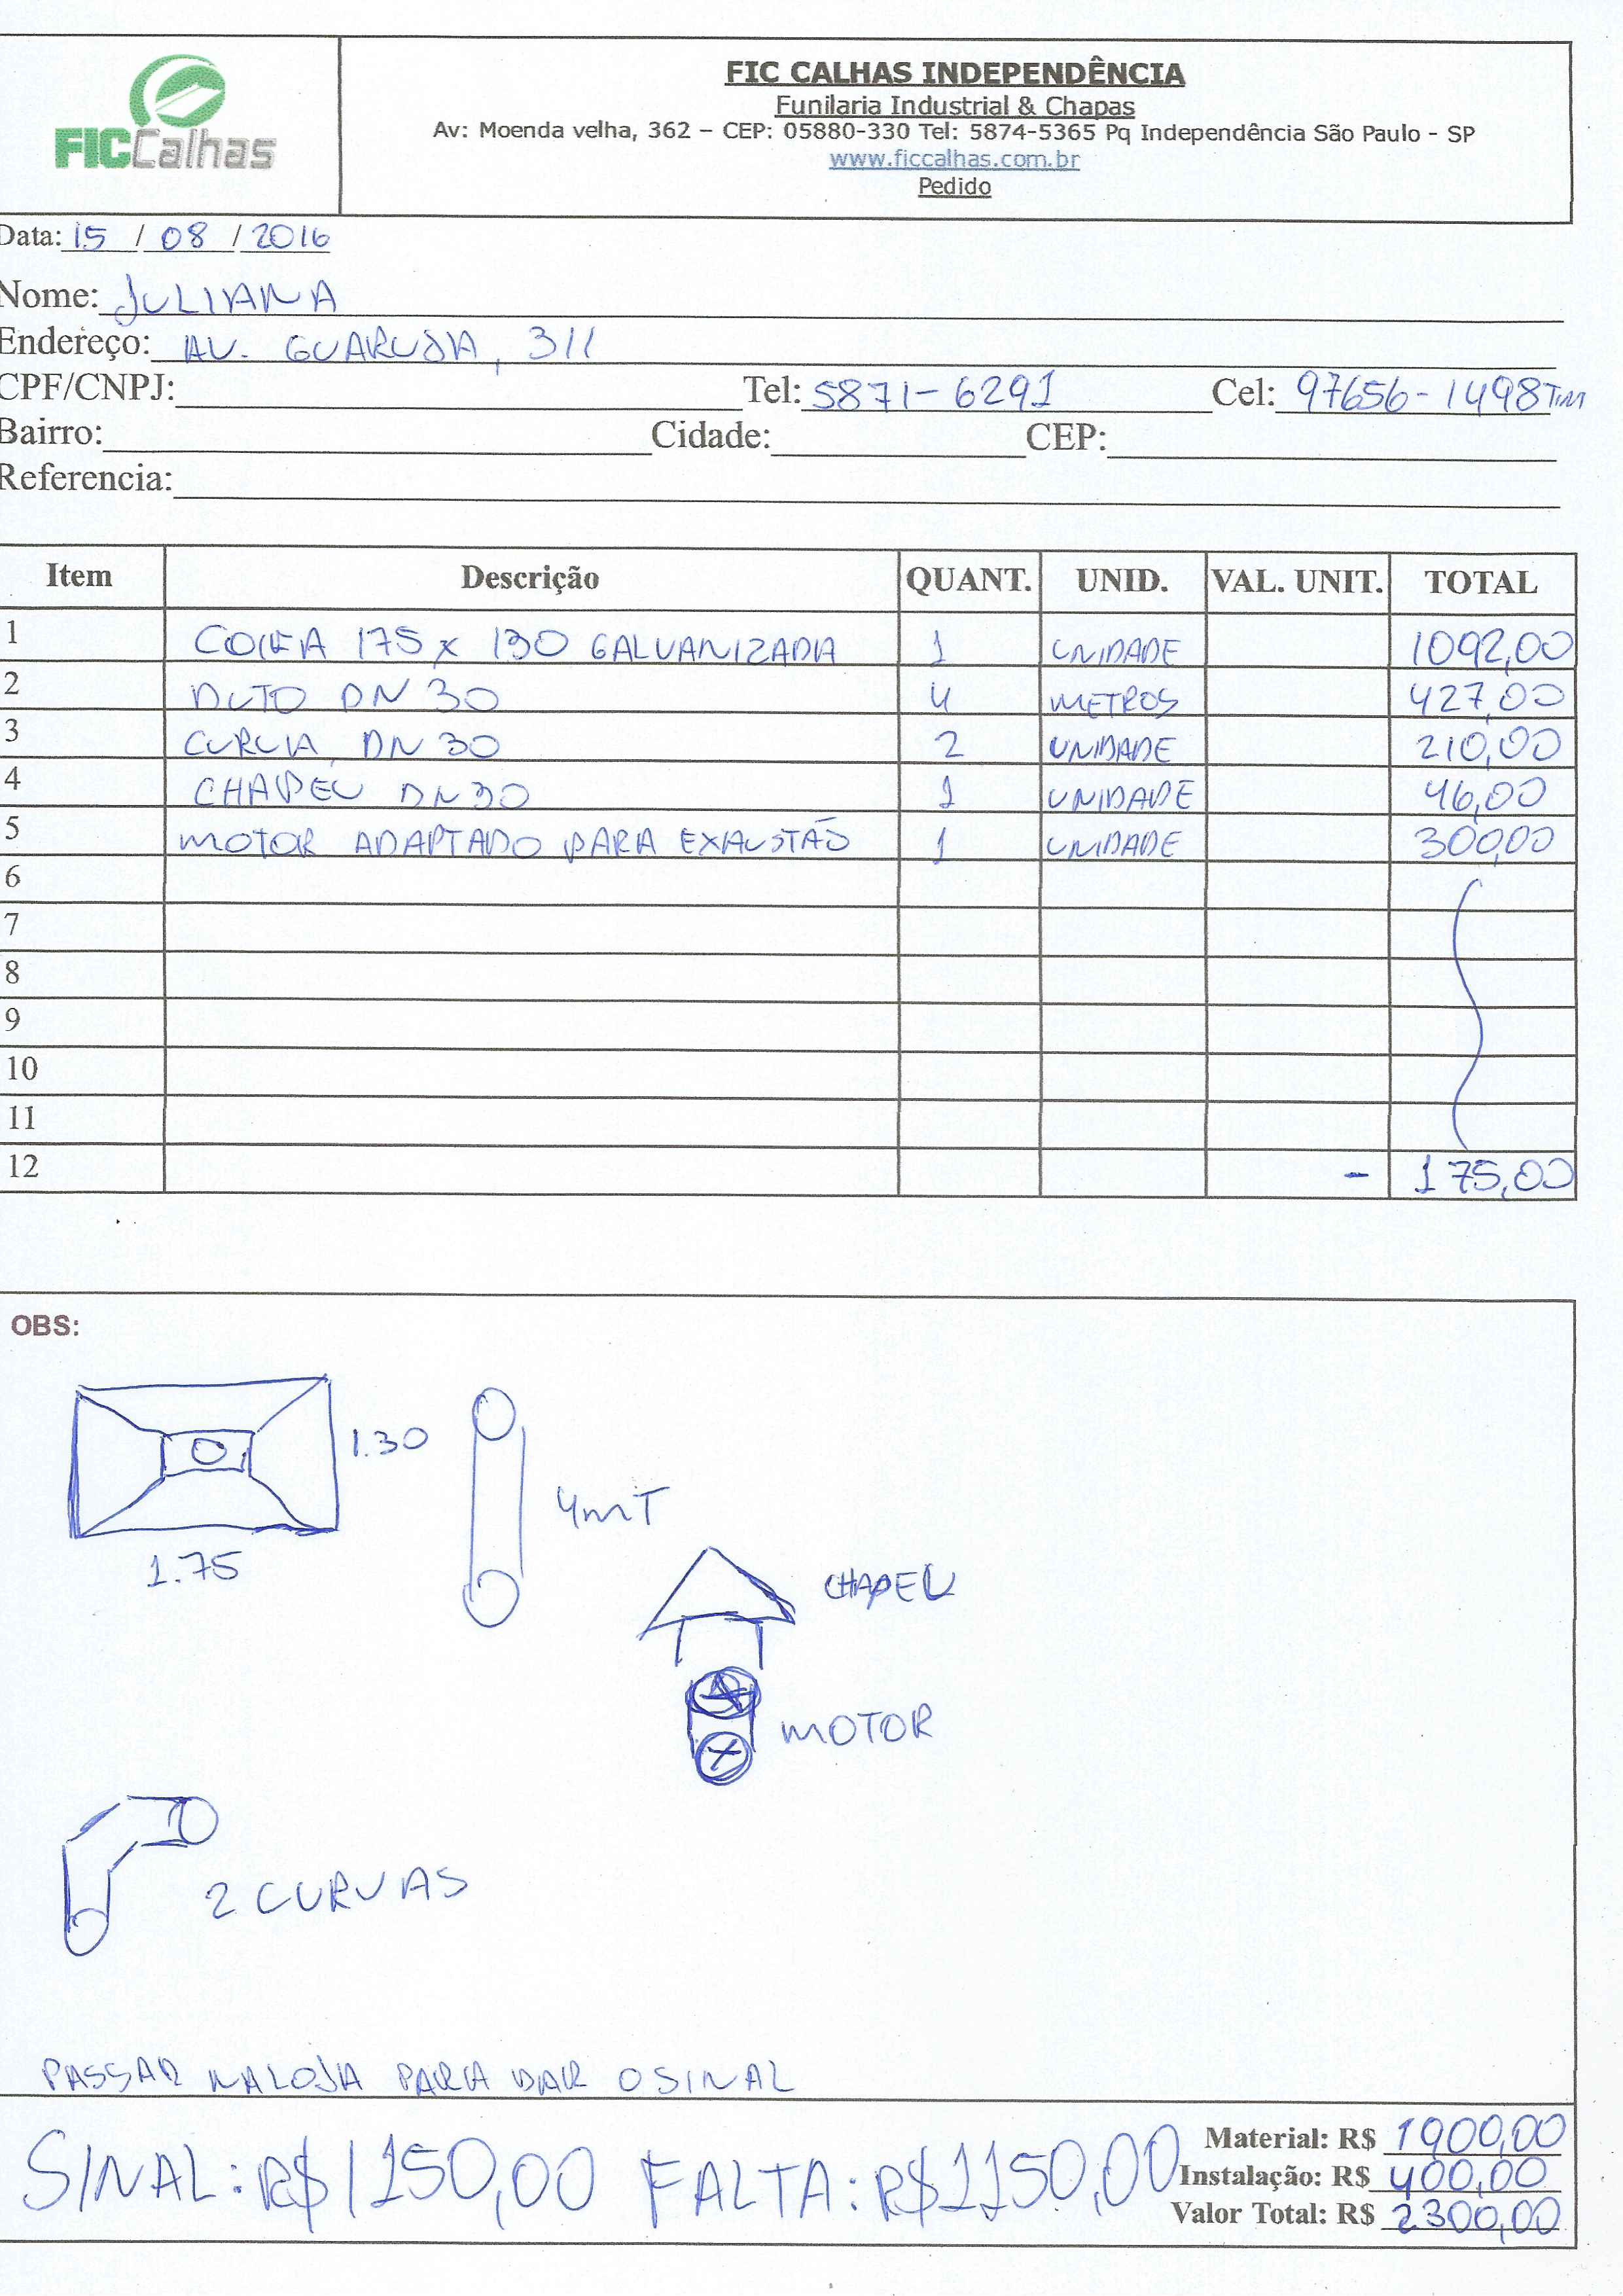 FICCalhas
FIC CALHAS INDEPENDÊNCIA
Funilaria Industrial & Chapas
Av: Moenda velha, 362 – CEP: 05880-330 Tel: 5874-5365 Pq Independência São Paulo - SP
www.ficcalhas.com.br
Pedido
Data: 15 / 08 / 2016
Nome: JULIANA
Endereço: AV. GUARUJA, 311
CPF/CNPJ: Tel: 5871-6291 Cel: 97656-1498 TIM
Bairro: Cidade: CEP:
Referencia:
Item Descrição QUANT. UNID. VAL. UNIT. TOTAL
1 COIFA 175 x 130 GALVANIZADA 1 UNIDADE 1092,00
2 DUTO DN 30 4 METROS 427,00
3 CURVA DN 30 2 UNIDADE 210,00
4 CHAPEU DN 30 1 UNIDADE 46,00
5 MOTOR ADAPTADO PARA EXAUSTÃO 1 UNIDADE 300,00
6
7
8
9
10
11
12 - 175,00
OBS:
1.30
1.75
4mT
CHAPEU
MOTOR
2 CURVAS
PASSAR NA LOJA PARA DAR O SINAL
SINAL: R$ 1150,00 FALTA: R$ 1150,00
Material: R$ 1900,00
Instalação: R$ 400,00
Valor Total: R$ 2300,00